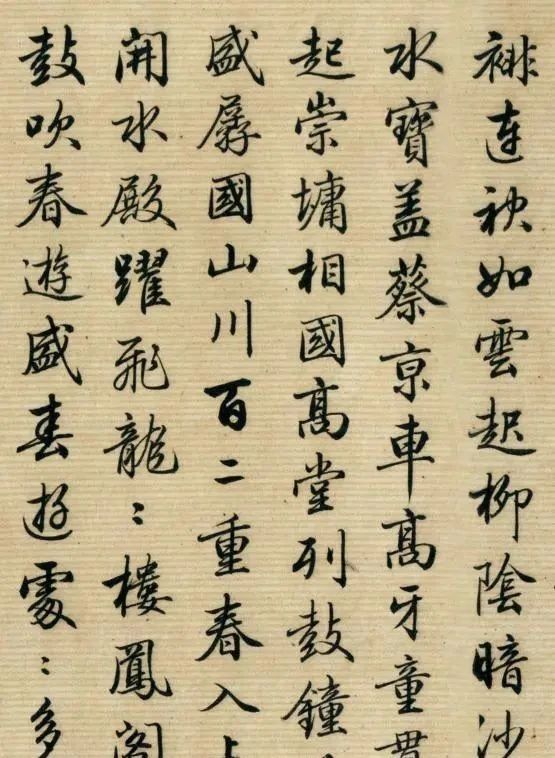 裶連袂如雲起柳陰暗沙
水寶盖蔡京車高牙童貫
起崇墉相國高堂列鼓鐘
盛國山川百二重春入
開水殿躍飛龍〻樓鳳閣
鼓吹春遊盛春遊處〻多